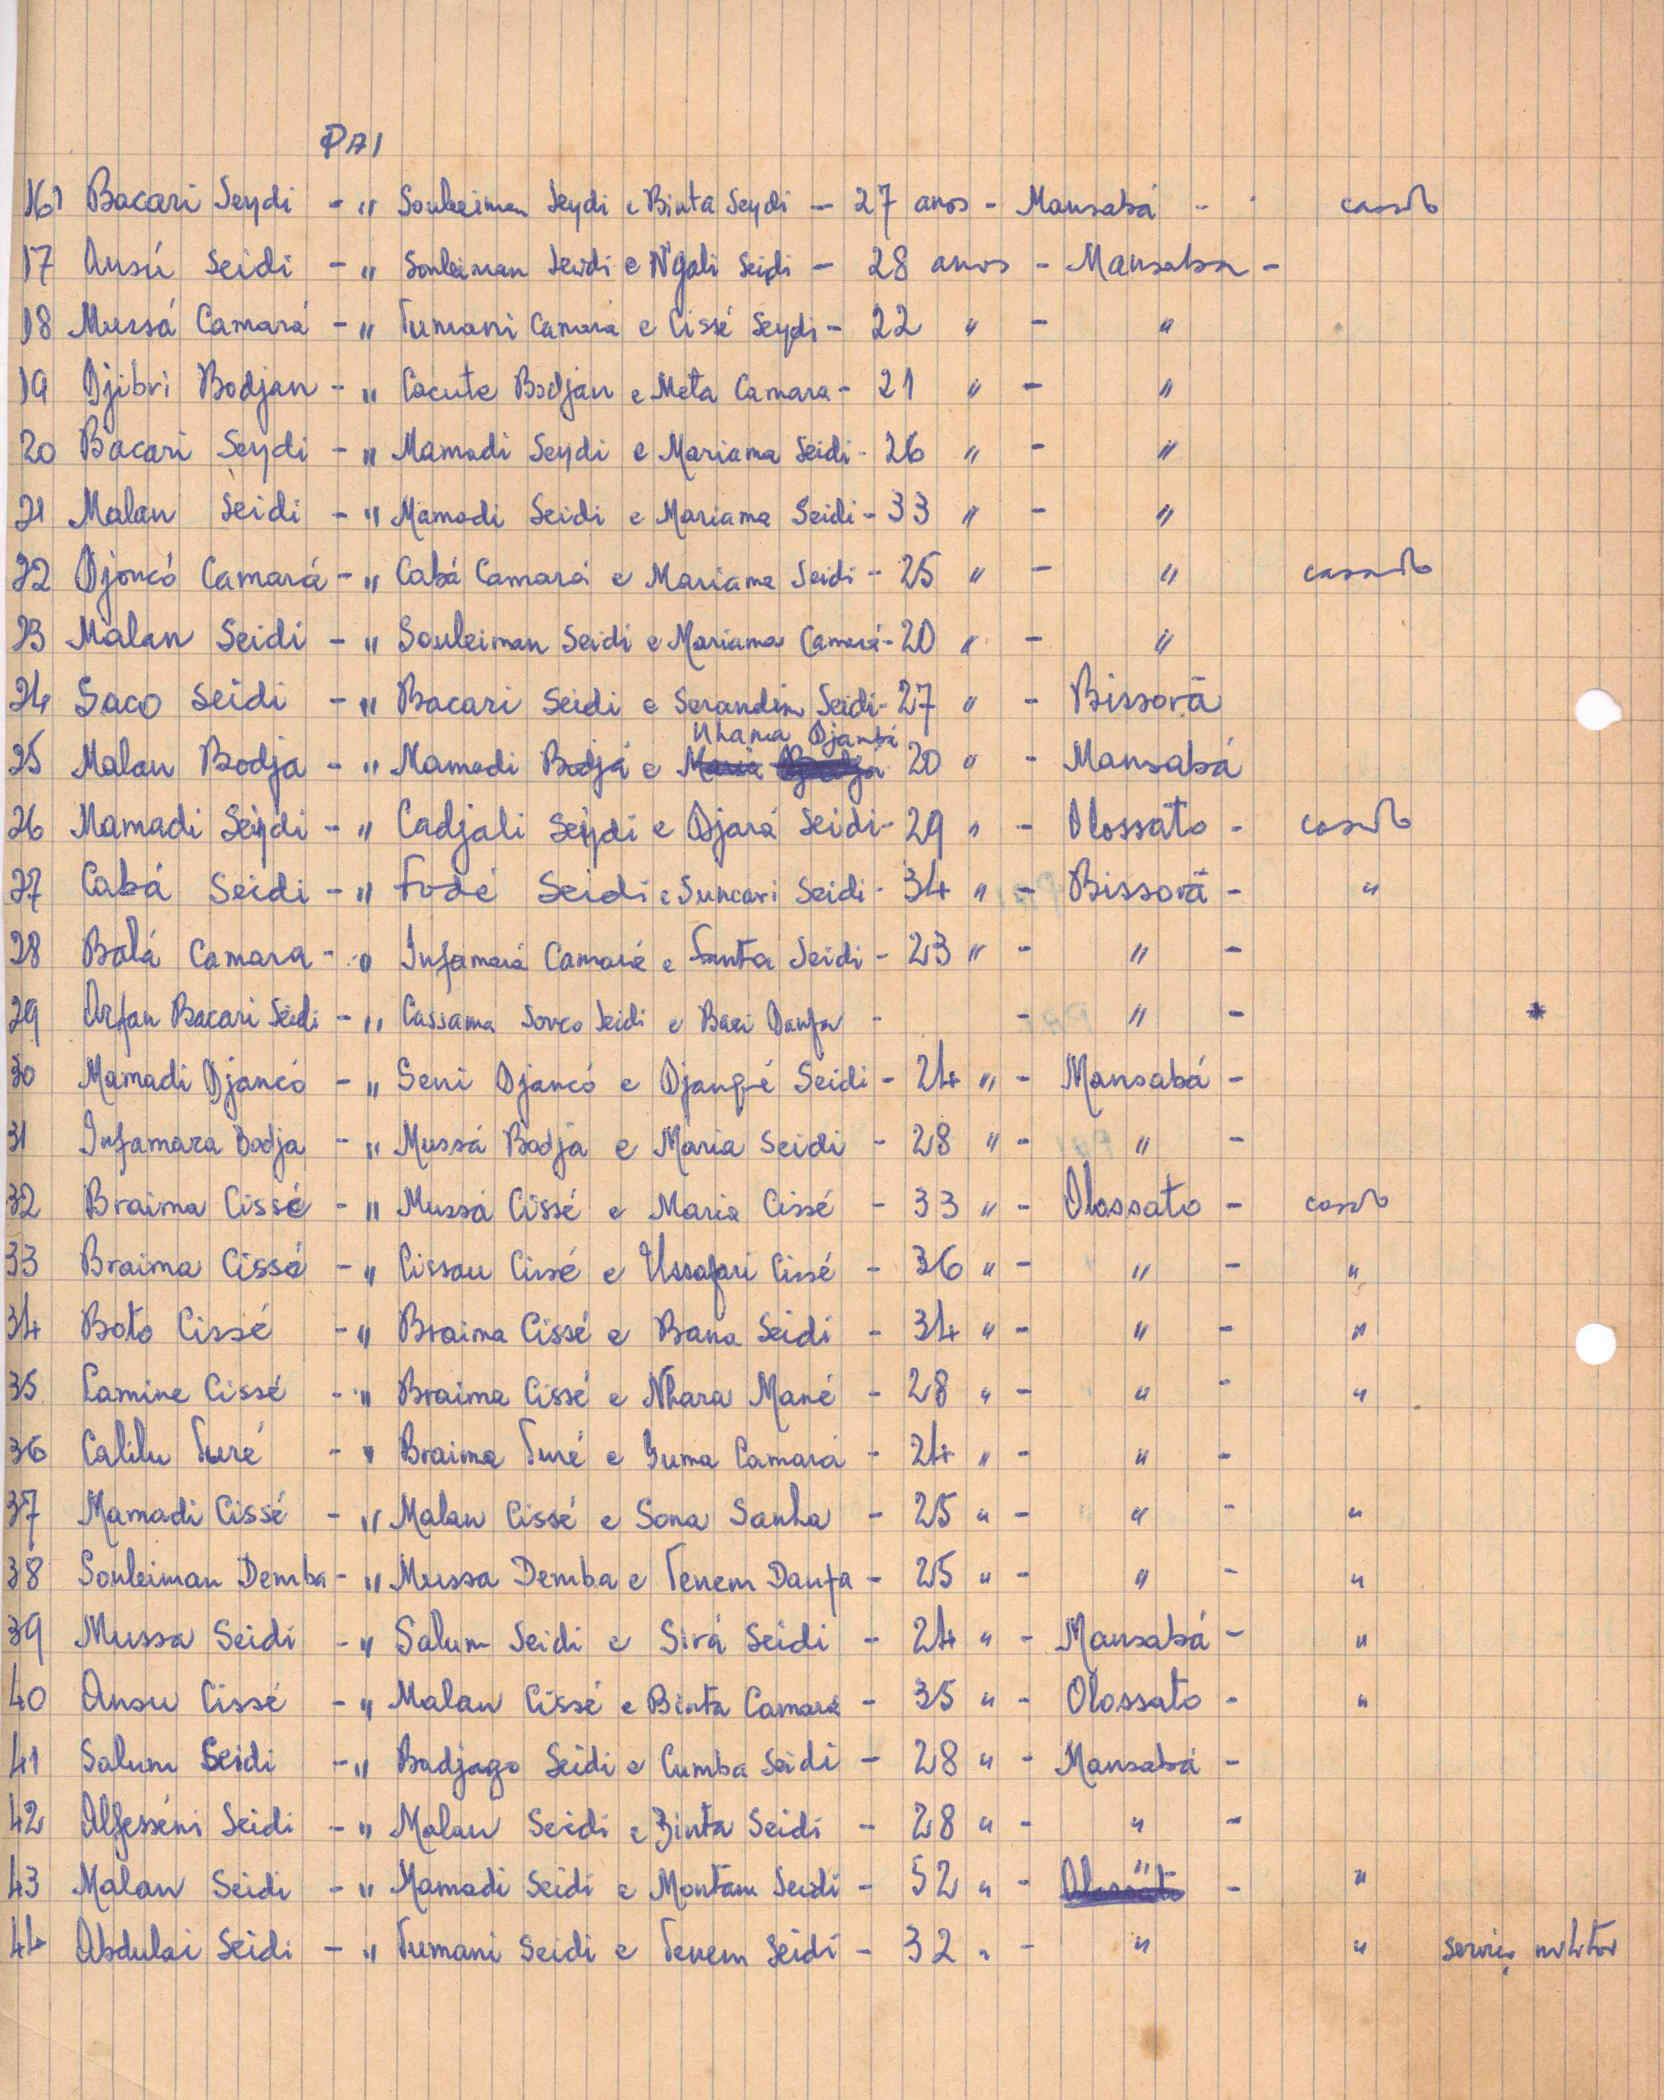 PAI
16) Bacari Seydi - " Souleiman Seydi e Binta Seydi - 27 anos - Mansabá - - casado
17 Ansú Seidi - " Souleiman Seidi e N'gali Seidi - 28 anos - Mansaba -
18 Mussá Camará - " Tumani Camará e Cissé Seydi - 22 " - "
19 Djibri Bodjan - " Cacute Bodjan e Meta Camara - 21 " - "
20 Bacari Seydi - " Mamadi Seydi e Mariama Seidi - 26 " - "
21 Malan Seidi - " Mamadi Seidi e Mariama Seidi - 33 " - "
22 Djoncó Camará - " Cabá Camará e Mariama Seidi - 25 " - " casado
23 Malan Seidi - " Souleiman Seidi e Mariama Camará - 20 " - "
24 Saco Seidi - " Bacari Seidi e Serandim Seidi - 27 " - Bissorã
Nhama Djambá
25 Malan Bodja - " Mamadi Bodjá e Maria 20 " - Mansabá
26 Mamadi Seydi - " Cadjali Seydi e Djará Seidi - 29 " - Olossato - casado
27 Cabá Seidi - " Fodé Seidi e Suncari Seidi - 34 " - Bissorã - "
28 Balá Camara - " Infamará Camará e Fanta Seidi - 23 " - " -
29 Arfan Bacari Seidi - " Cassama Sonco Seidi e Baci Danfa - - " - *
30 Mamadi Djancó - " Seni Djancó e Djanqé Seidi - 24 " - Mansabá -
31 Infamara Bodja - " Mussá Bodja e Maria Seidi - 28 " - " -
32 Braima Cissé - " Mussá Cissé e Maria Cissé - 33 " - Olossato - casado
33 Braima Cissé - " Cissau Cissé e Ussafari Cissé - 36 " - " - "
34 Boto Cissé - " Braima Cissé e Bana Seidi - 34 " - " - "
35 Lamine Cissé - " Braima Cissé e Nhara Mané - 28 " - " - "
36 Calilu Turé - " Braima Turé e Juma Camará - 24 " - " -
37 Mamadi Cissé - " Malan Cissé e Sona Sanha - 25 " - " - "
38 Souleiman Demba - " Mussa Demba e Tenem Danfa - 25 " - " - "
39 Mussa Seidi - " Salum Seidi e Sirá Seidi - 24 " - Mansabá - "
40 Ansu Cissé - " Malan Cissé e Binta Camará - 35 " - Olossato - "
41 Salum Seidi - " Badjago Seidi e Cumba Seidi - 28 " - Mansabá -
42 Alfesséni Seidi - " Malan Seidi e Binta Seidi - 28 " - " -
43 Malan Seidi - " Mamadi Seidi e Montam Seidi - 52 " - Olossato " - "
44 Abdulai Seidi - " Tumani Seidi e Tenem Seidi - 32 " - " " serviço militar